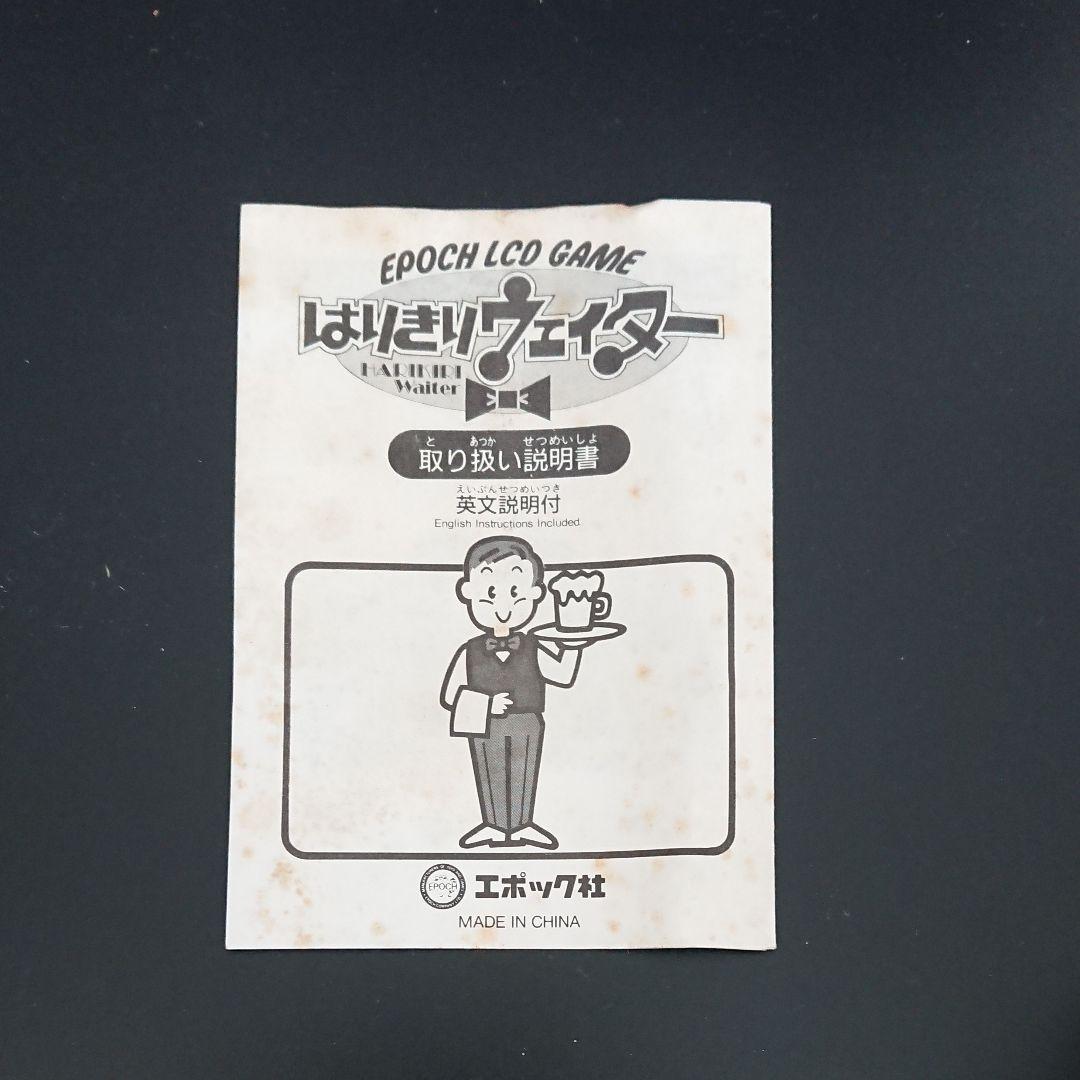 EPOCH LCD GAME
はりきりウェイター
HARIKIRI
Waiter
と あつか せつめいしよ
取り扱い説明書
えいぶんせつめいつき
英文説明付
English Instructions Included
EPOCH
エポック社
MADE IN CHINA